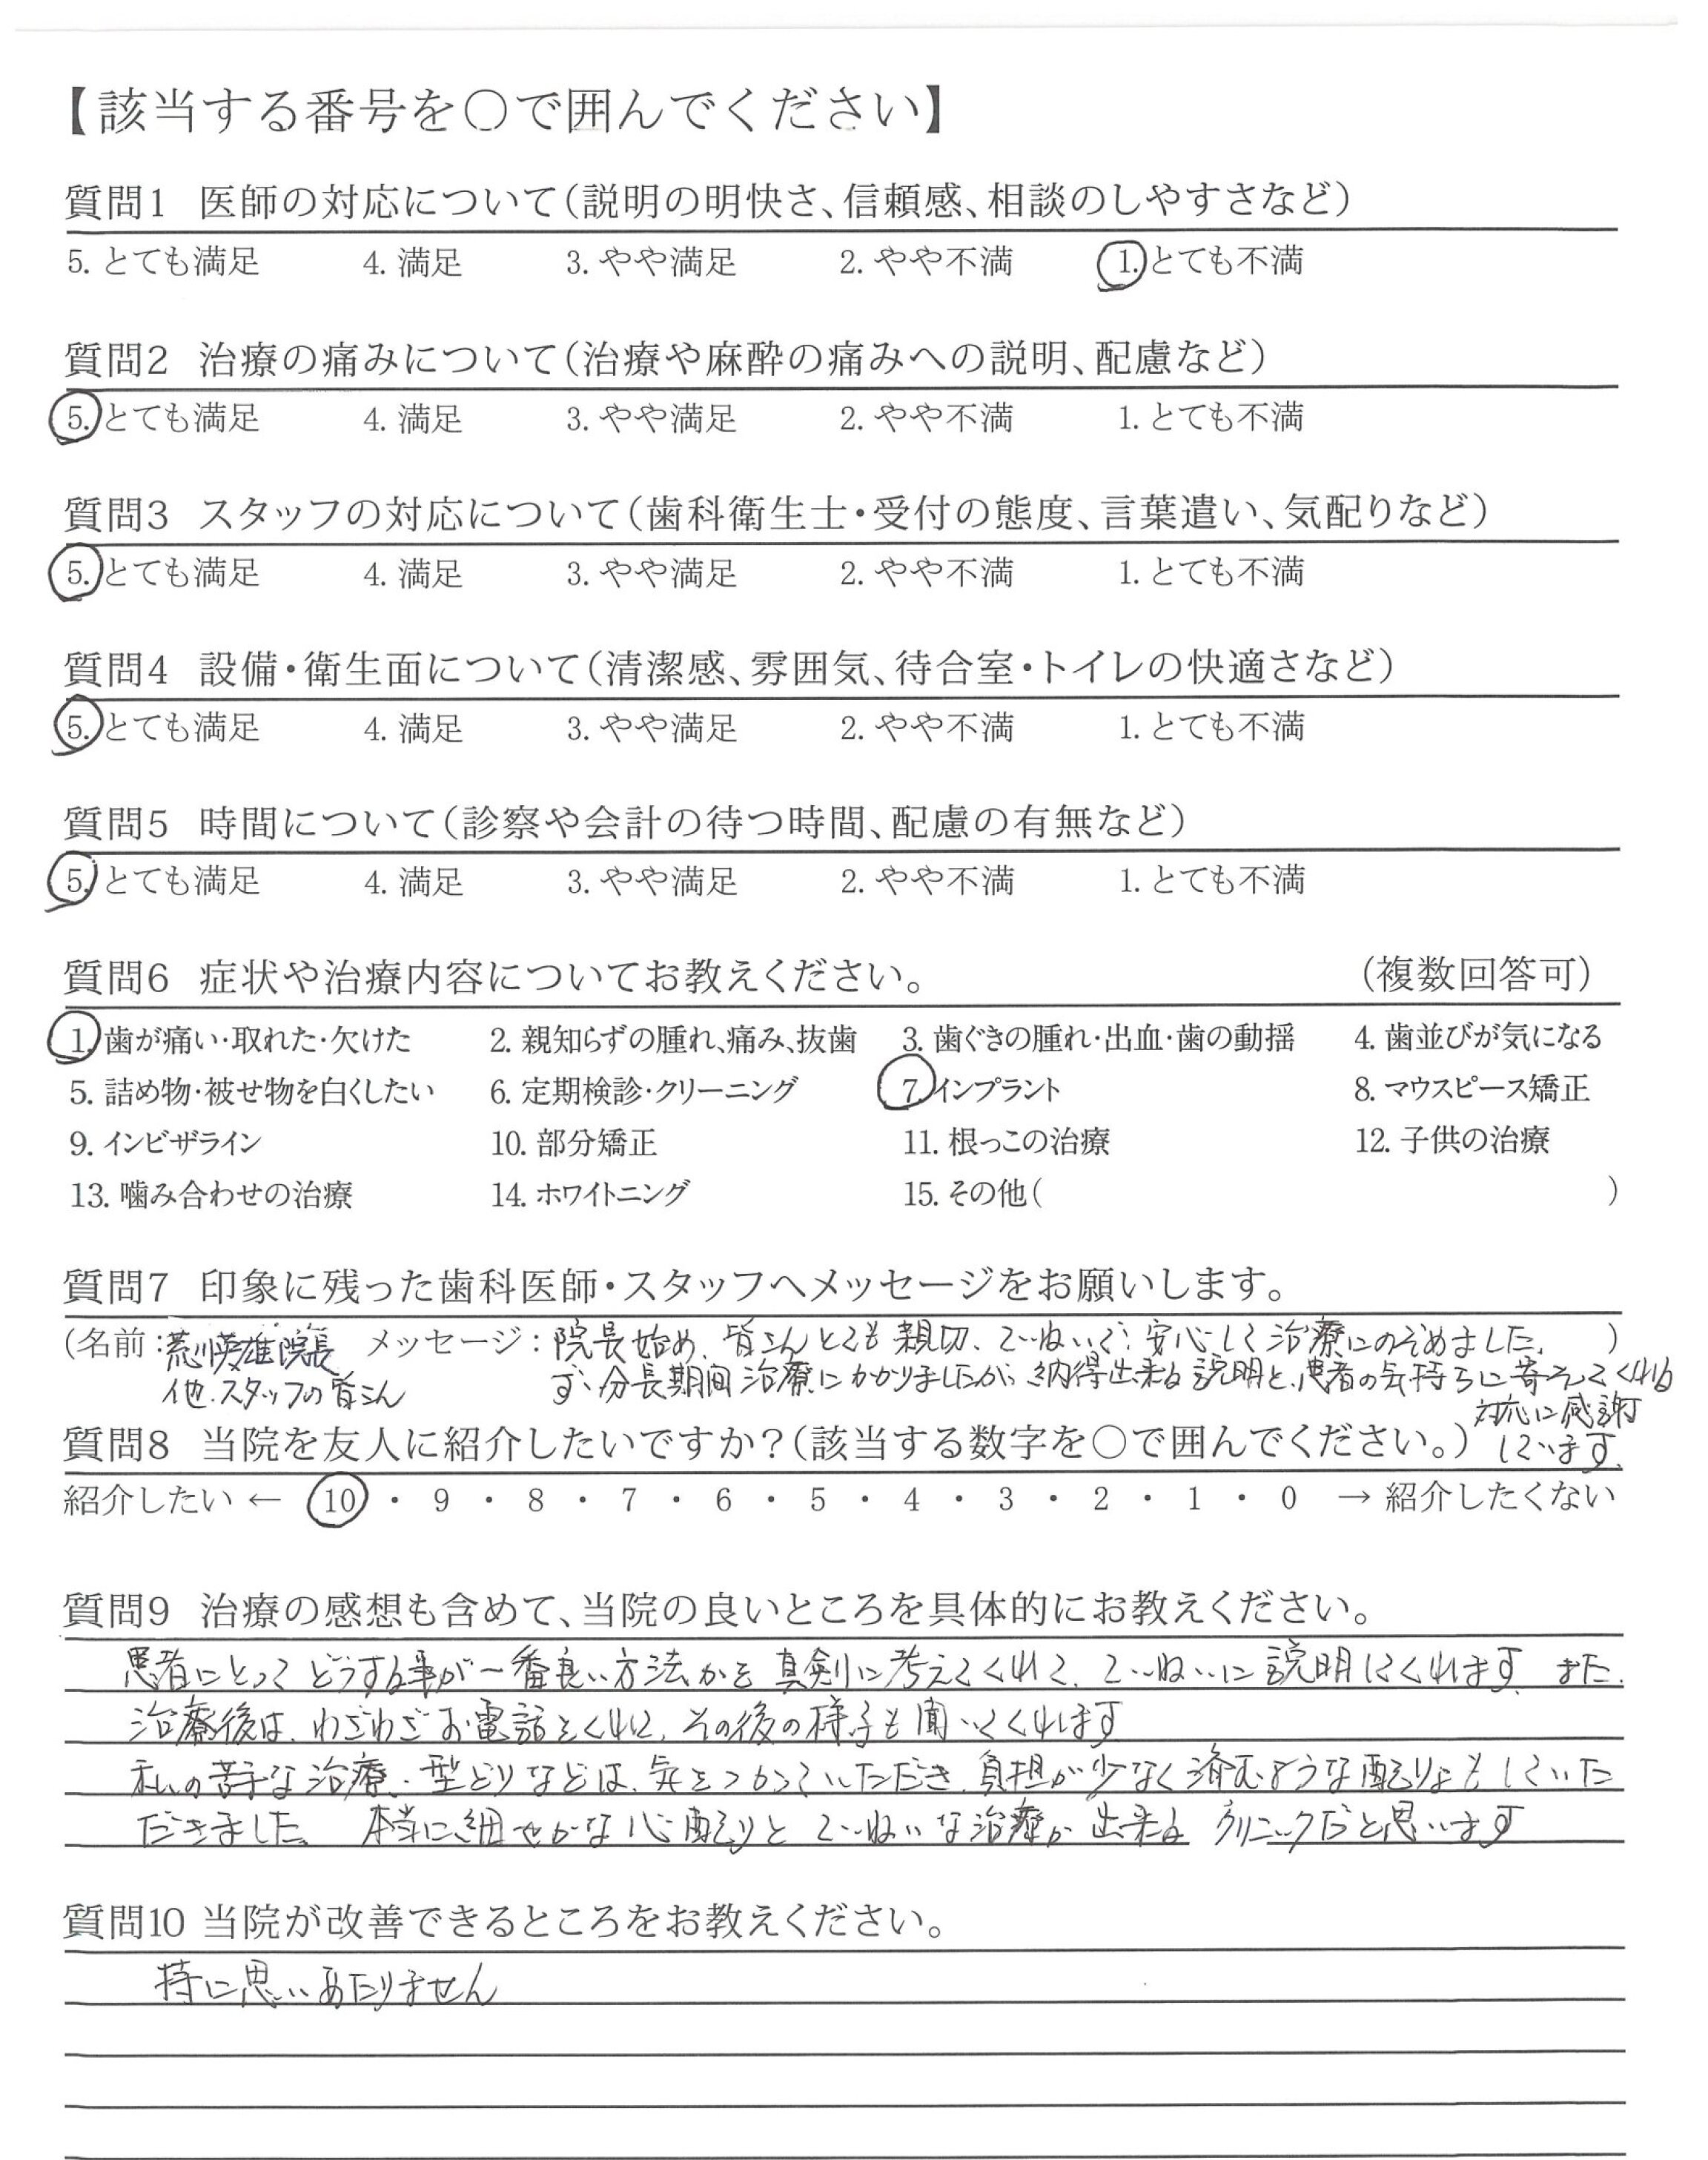 【該当する番号を○で囲んでください】
質問1 医師の対応について(説明の明快さ、信頼感、相談のしやすさなど)
5. とても満足 4. 満足 3. やや満足 2. やや不満 1. とても不満
質問2 治療の痛みについて(治療や麻酔の痛みへの説明、配慮など)
5. とても満足 4. 満足 3. やや満足 2. やや不満 1. とても不満
質問3 スタッフの対応について(歯科衛生士・受付の態度、言葉遣い、気配りなど)
5. とても満足 4. 満足 3. やや満足 2. やや不満 1. とても不満
質問4 設備・衛生面について(清潔感、雰囲気、待合室・トイレの快適さなど)
5. とても満足 4. 満足 3. やや満足 2. やや不満 1. とても不満
質問5 時間について(診察や会計の待つ時間、配慮の有無など)
5. とても満足 4. 満足 3. やや満足 2. やや不満 1. とても不満
質問6 症状や治療内容についてお教えください。 (複数回答可)
1. 歯が痛い・取れた・欠けた 2. 親知らずの腫れ、痛み、抜歯 3. 歯ぐきの腫れ・出血・歯の動揺 4. 歯並びが気になる
5. 詰め物・被せ物を白くしたい 6. 定期検診・クリーニング 7. インプラント 8. マウスピース矯正
9. インビザライン 10. 部分矯正 11. 根っこの治療 12. 子供の治療
13. 噛み合わせの治療 14. ホワイトニング 15. その他( )
質問7 印象に残った歯科医師・スタッフへメッセージをお願いします。
(名前:荒川英雄院長 メッセージ:院長始め、皆さんとても親切、ていねいで、安心して治療にのぞめました。 )
他、スタッフの皆さん ずい分長期間治療にかかりましたが、納得出来る説明と、患者の気持ちに寄そってくれる
対応に感謝
しています。
質問8 当院を友人に紹介したいですか?(該当する数字を○で囲んでください。)
紹介したい ← 10 ・ 9 ・ 8 ・ 7 ・ 6 ・ 5 ・ 4 ・ 3 ・ 2 ・ 1 ・ 0 → 紹介したくない
質問9 治療の感想も含めて、当院の良いところを具体的にお教えください。
患者にとってどうする事が一番良い方法かを真剣に考えてくれて、ていねいに説明してくれます。また、
治療後は、わざわざお電話をくれて、その後の様子も聞いてくれます
私の苦手な治療、型どりなどは、気をつかっていただき、負担が少なく済むような配りょもしていた
だきました。本当に細やかな心配りとていねいな治療が出来るクリニックだと思います
質問10 当院が改善できるところをお教えください。
特に思いあたりません